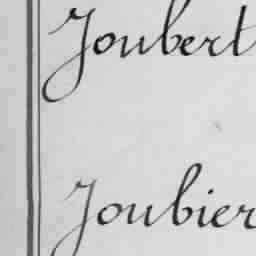 Joubert
Joubier